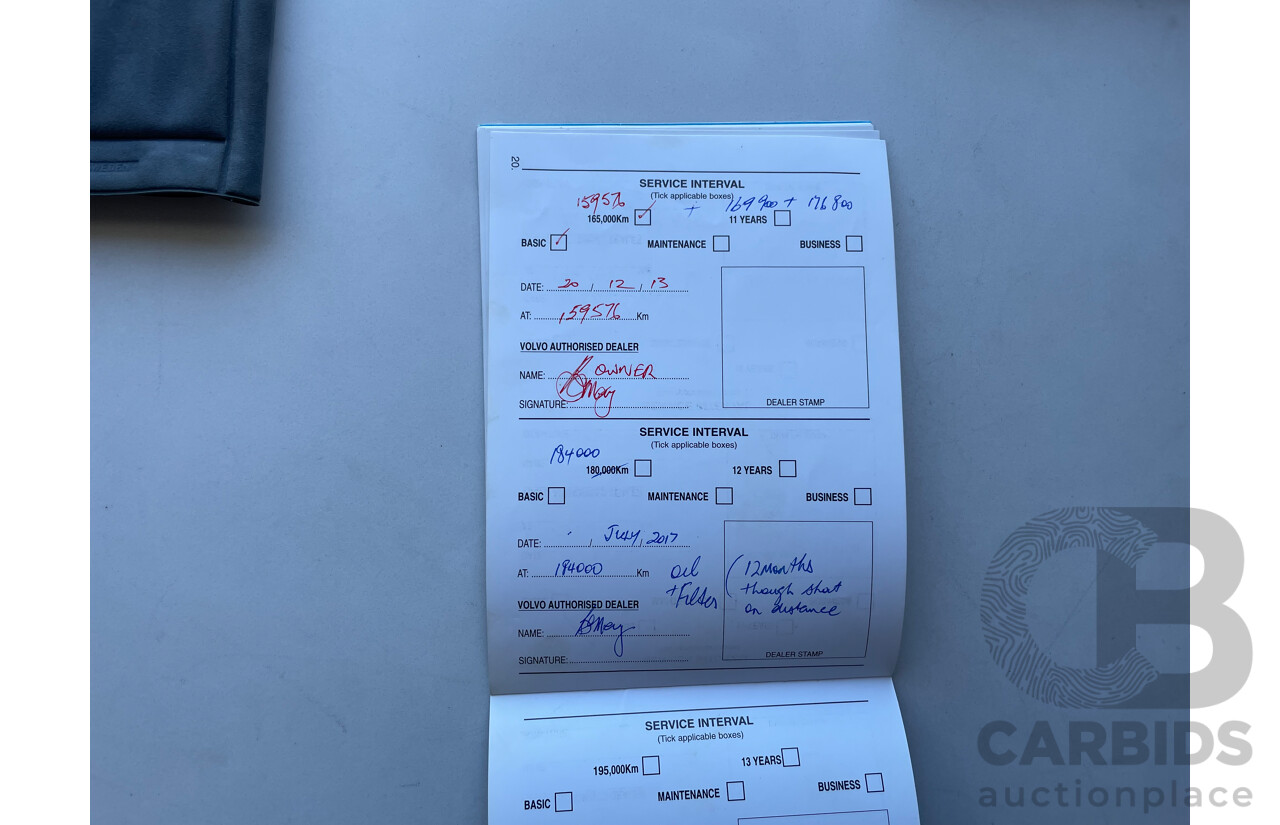 20.
SERVICE INTERVAL
(Tick applicable boxes)
159576 + 169900 + 176800
165,000Km 11 YEARS
BASIC MAINTENANCE BUSINESS
DATE: 20, 12, 13
AT: 159576 Km
VOLVO AUTHORISED DEALER
NAME: OWNER
SIGNATURE:
DEALER STAMP
SERVICE INTERVAL
(Tick applicable boxes)
184000
180,000Km 12 YEARS
BASIC MAINTENANCE BUSINESS
DATE: , July, 2017
AT: 194000 Km
oil
+ Filter
(12 months
though short
on distance
VOLVO AUTHORISED DEALER
NAME:
SIGNATURE:
DEALER STAMP
SERVICE INTERVAL
(Tick applicable boxes)
195,000Km 13 YEARS
BASIC MAINTENANCE BUSINESS
CB
CARBIDS
auctionplace